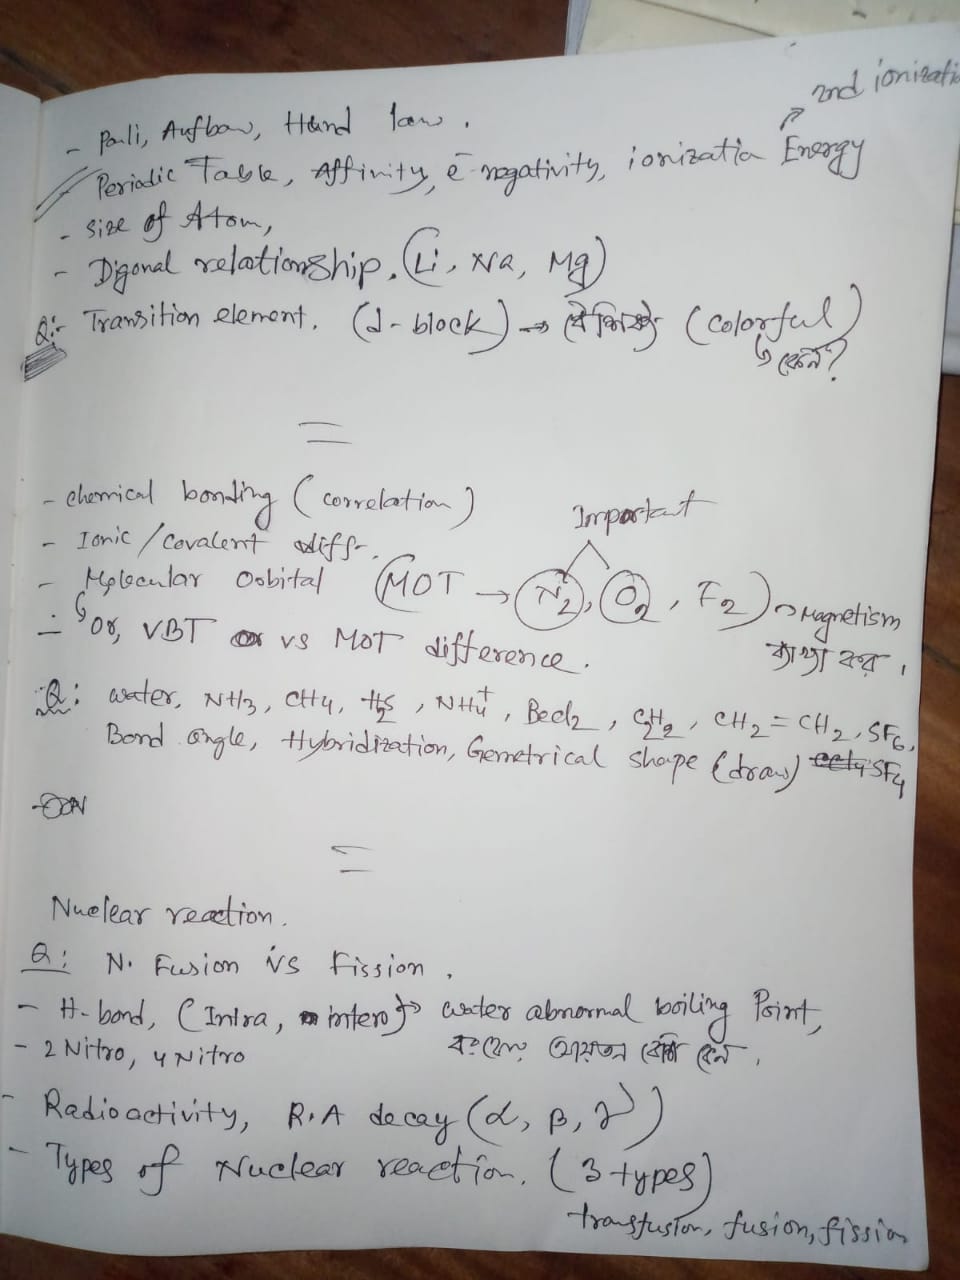 2nd ionizati
- Pauli, Aufbow, Hund law.
Periodic Table, Affinity, e-negativity, ionizatia Energy
- size of Atom,
- Digonal relationship. (Li, Na, Mg)
Q:- Transition element. (d-block) → বৈশিষ্ট্য (colorful)
কেন?
- chemical bonding (correlation)
Important
- Ionic/covalent diff.
- Molecular Oobital (MOT → N2, O2, F2) → Magnetism
- or, VBT vs MOT difference. ব্যাখ্যা কর।
Q: water, NH3, CH4, H2S, NH4+, Becl2, C2H2, CH2=CH2, SF6,
Bond angle, Hybridization, Gemetrical shape (draw) SF4
Nuclear reaction.
Q: N. Fusion vs Fission.
- H-bond, (Intra, inter) → water abnormal boiling Point,
- 2 Nitro, 4 Nitro বরফের আয়তন বেশি কেন.
- Radioactivity, R.A decay (α, β, γ)
- Types of Nuclear reaction. (3 types)
transfusion, fusion, fission